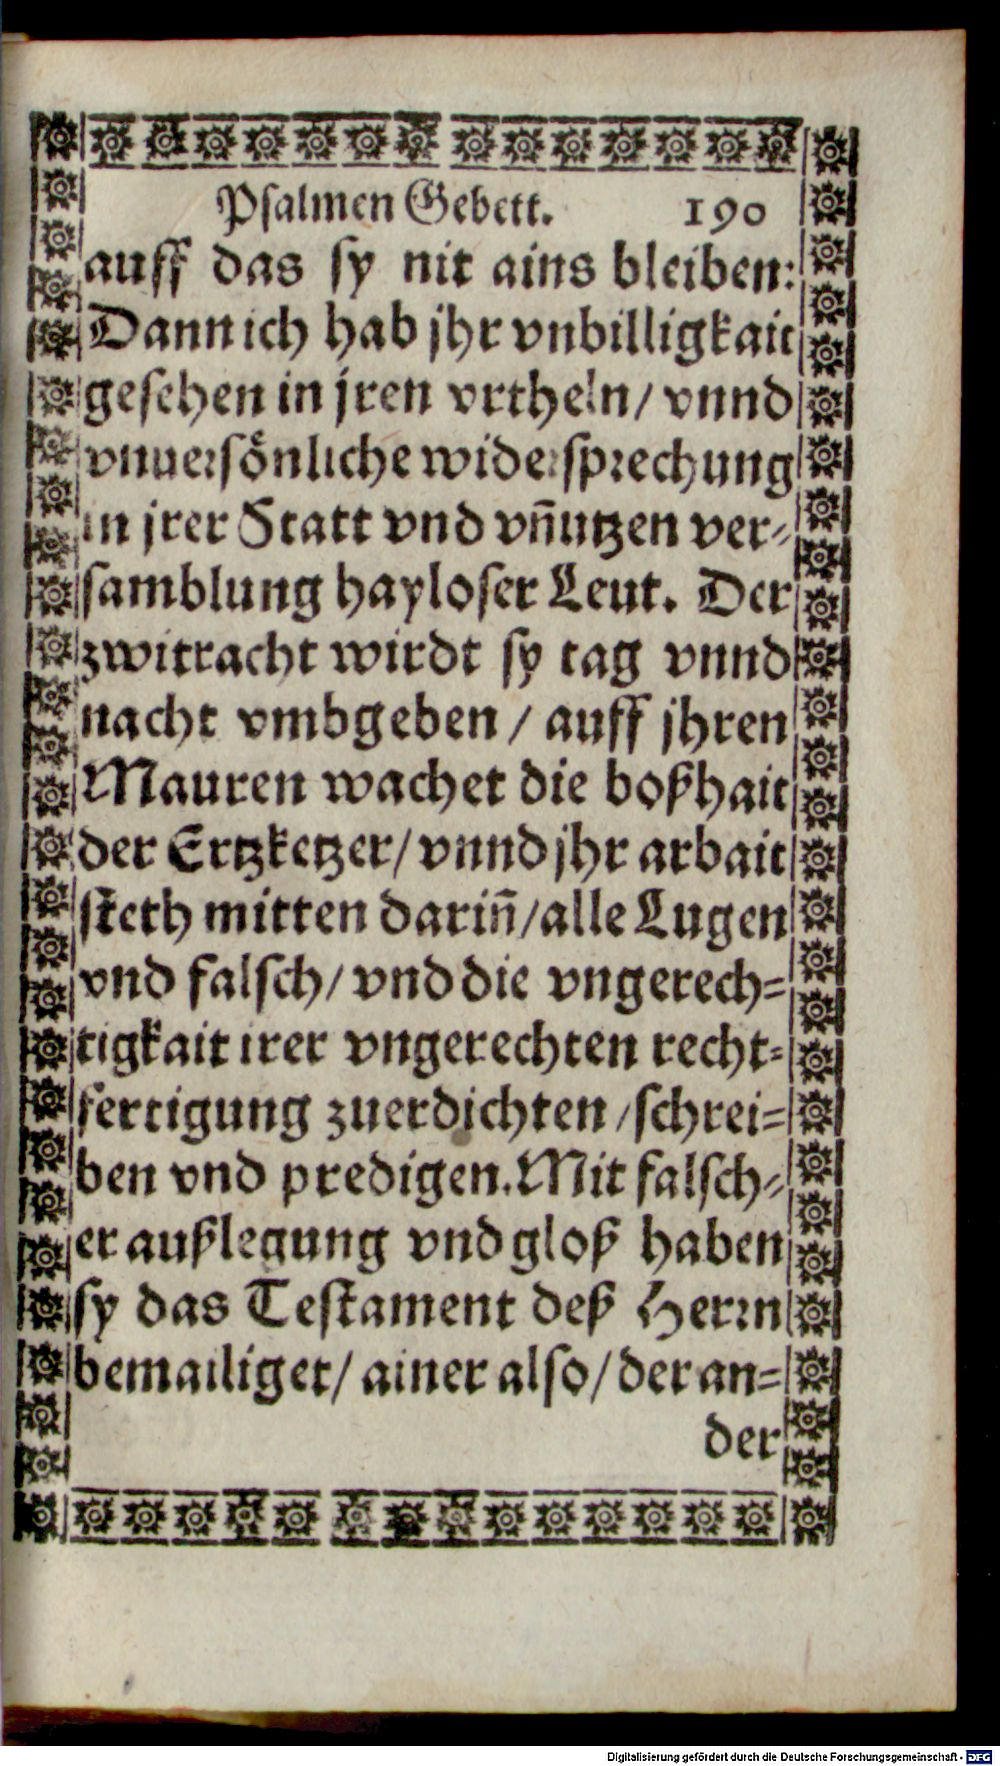 Psalmen Gebett. 190
auff das sy nit ains bleiben:
Dann ich hab jhr vnbilligkait
gesehen in jren vrtheln/ vnnd
vnuersönliche widersprechung
in jrer Statt vnd vñutzen ver-
samblung hayloser Leut. Der
zwitracht wirdt sy tag vnnd
nacht vmbgeben / auff jhren
Mauren wachet die boßhait
der Ertzketzer/ vnnd jhr arbait
steth mitten dariñ/alle Lugen
vnd falsch/ vnd die vngerech-
tigkait irer vngerechten recht-
fertigung zuerdichten /schrei-
ben vnd predigen. Mit falsch-
er außlegung vnd gloß haben
sy das Testament deß Herrn
bemailiget/ ainer also/ der an-
der
Digitalisierung gefördert durch die Deutsche Forschungsgemeinschaft - DFG